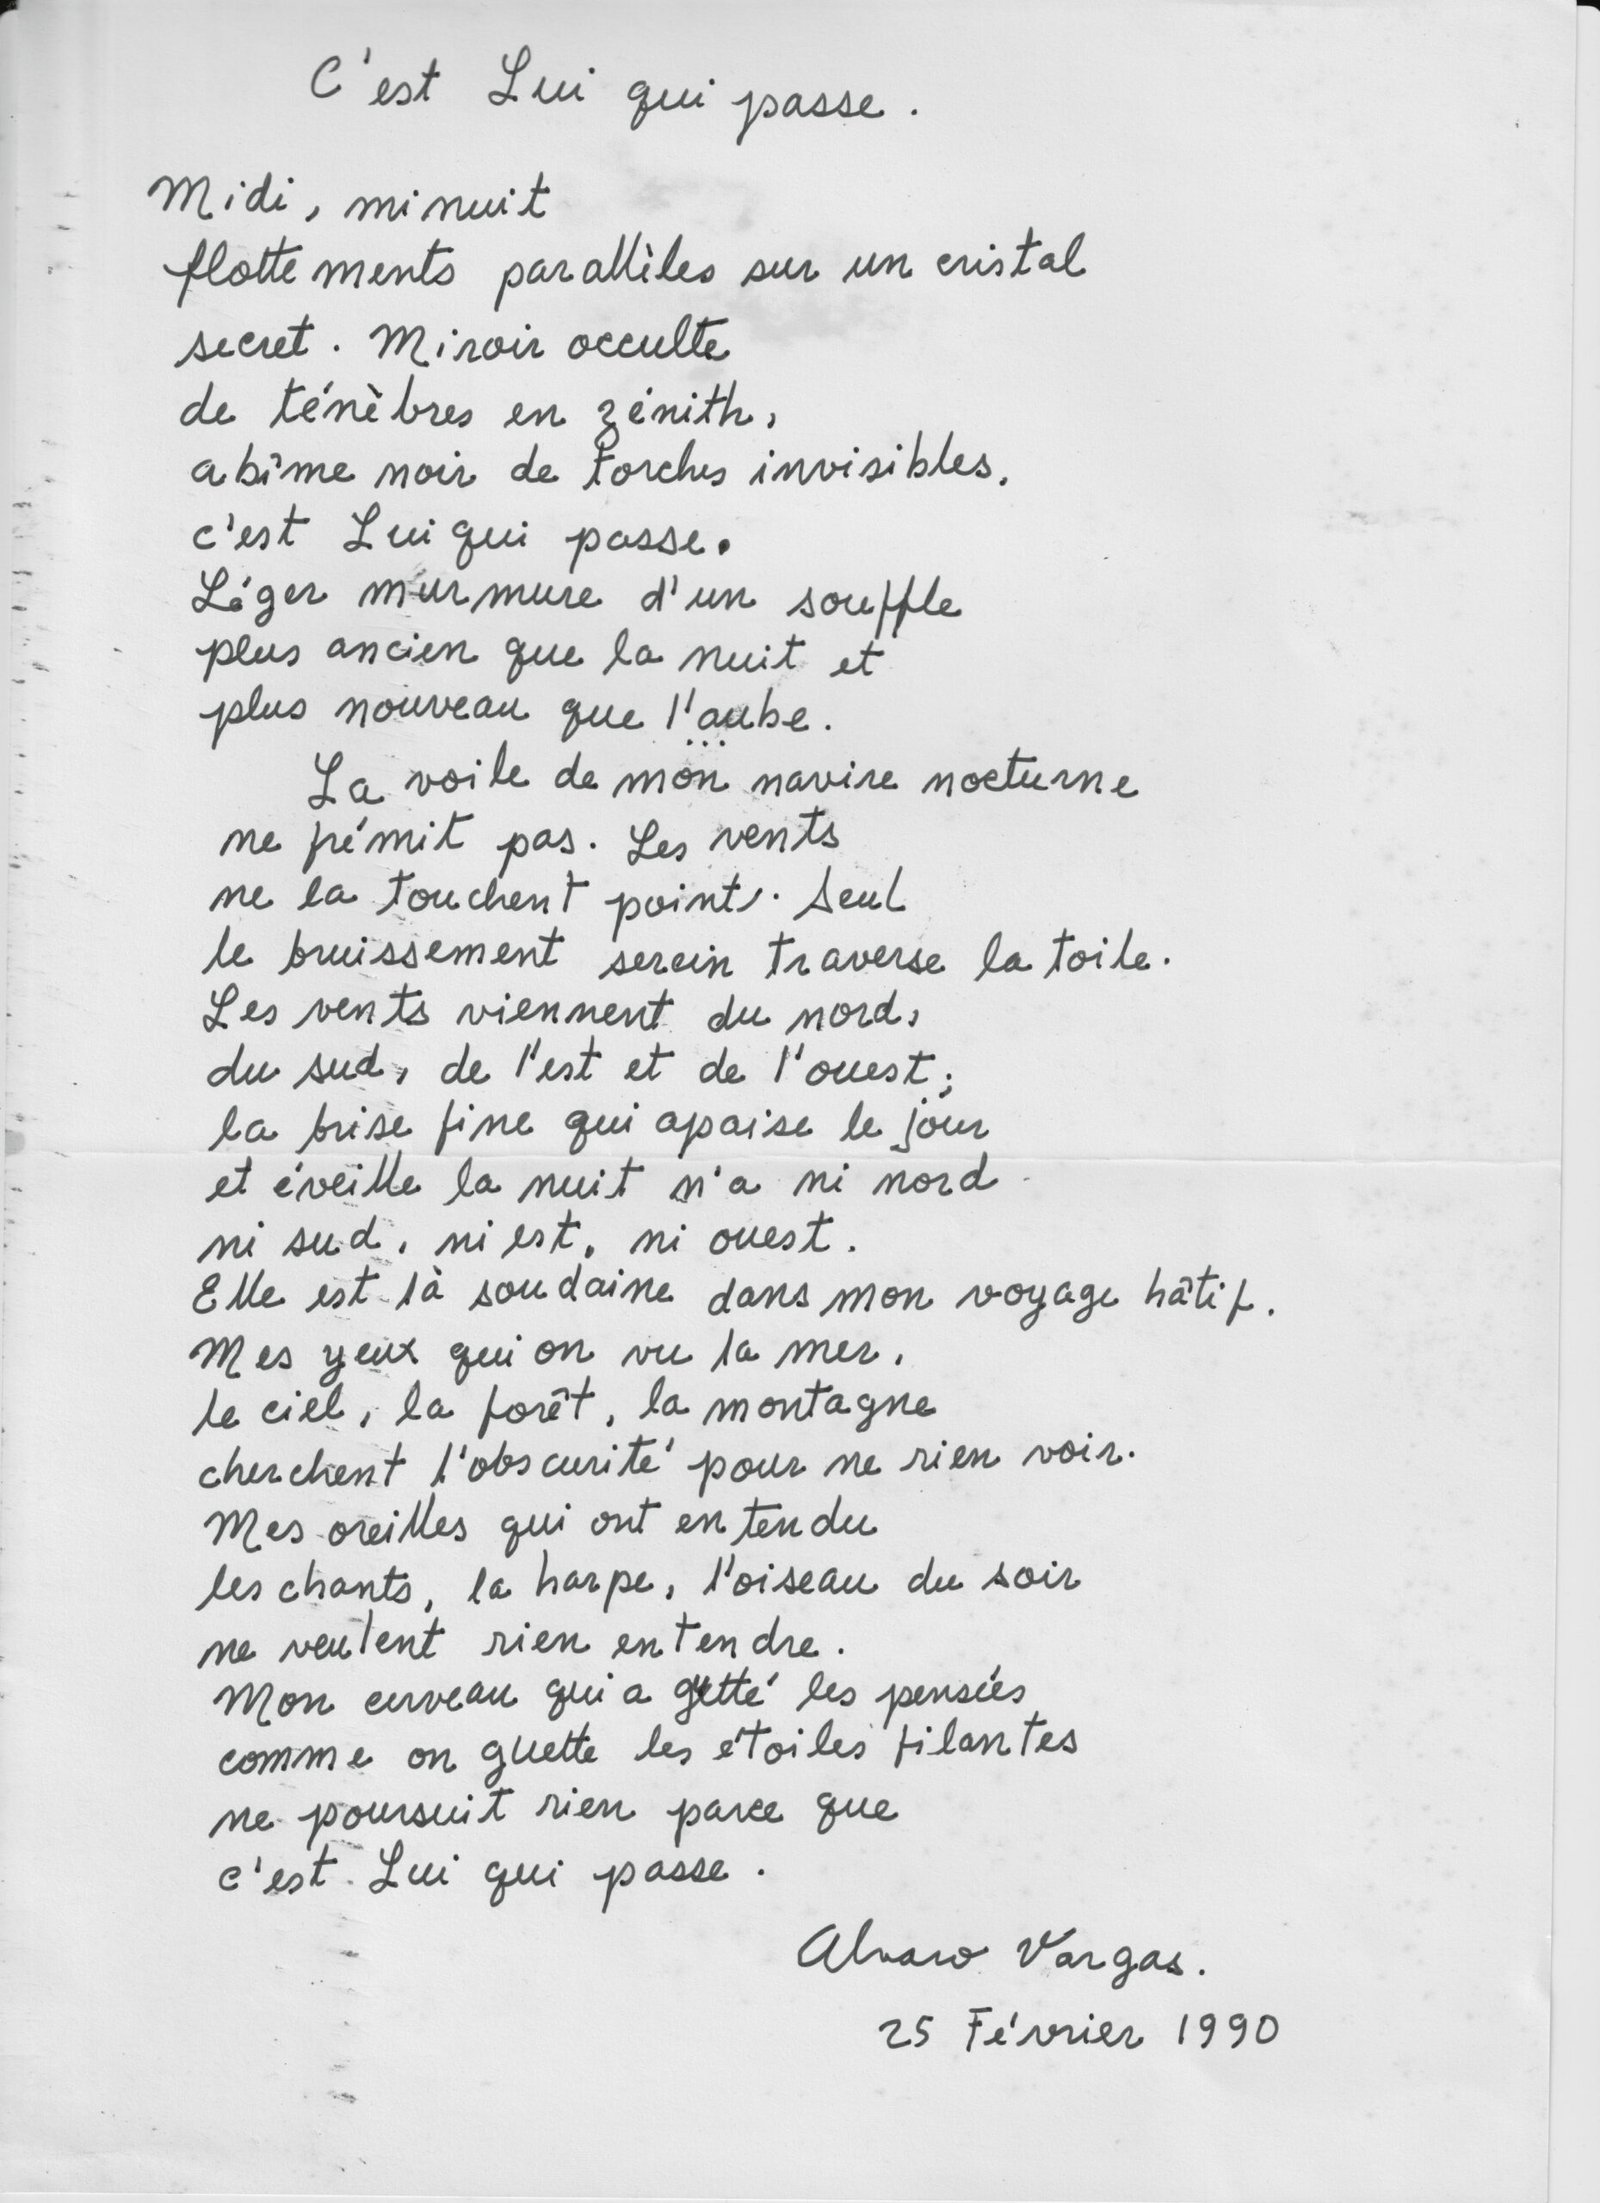 C'est Lui qui passe.
Midi, minuit
flottements parallèles sur un cristal
secret. Miroir occulte
de ténèbres en zénith,
abîme noir de torches invisibles,
c'est Lui qui passe.
Léger murmure d'un souffle
plus ancien que la nuit et
plus nouveau que l'aube.
...
La voile de mon navire nocturne
ne frémit pas. Les vents
ne la touchent point. Seul
le bruissement serein traverse la toile.
Les vents viennent du nord,
du sud, de l'est et de l'ouest;
la brise fine qui apaise le jour
et éveille la nuit n'a ni nord
ni sud, ni est, ni ouest.
Elle est là soudaine dans mon voyage hâtif.
Mes yeux qui on vu la mer,
le ciel, la forêt, la montagne
cherchent l'obscurité pour ne rien voir.
Mes oreilles qui ont entendu
les chants, la harpe, l'oiseau du soir
ne veulent rien entendre.
Mon cerveau qui a guetté les pensées
comme on guette les étoiles filantes
ne poursuit rien parce que
c'est Lui qui passe.
Alvaro Vargas.
25 Février 1990